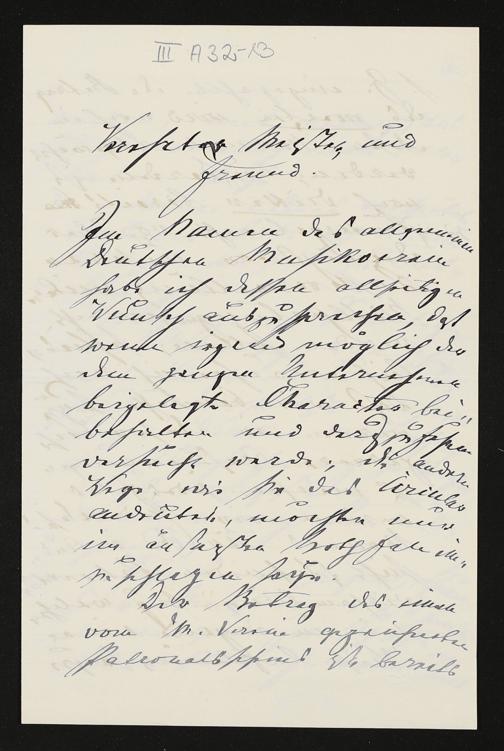 III A32-13
Verehrter Meister, und
Freund.
Im Namen des allgemeinen
Deutschen Musikverein
habe ich dessen allseitigen
Wunsch auszusprechen, daß
wenn irgend möglich der
dem ganzen Unternehmen
beigelegte Character bei-
behalten und durchzusetzen
versucht werde; die andern
Wege wie sie das Circular
andeutet, möchten nur
im äußersten Nothfall ein-
zuschlagen sein.
Der Betrag des einen
vom M. Verein gezeichneten
Patronatsscheins ist bereits